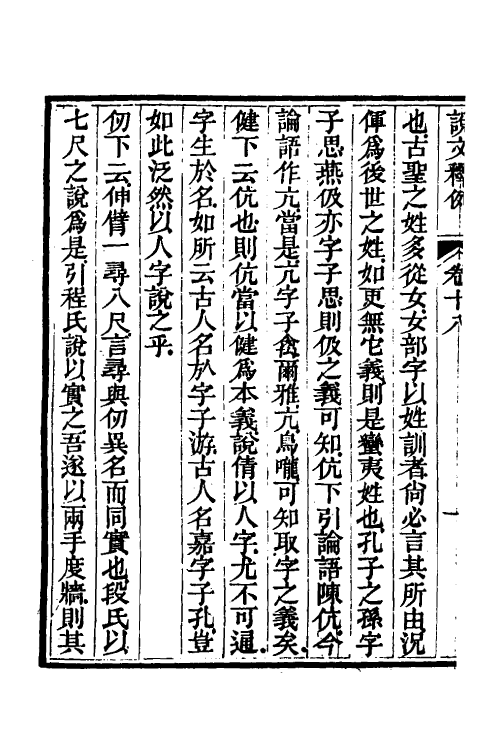 說文釋例 卷十八
也古聖之姓多從女女部字以姓訓者尙必言其所由況
㑮爲後世之姓如更無它義則是蠻夷姓也孔子之孫字
子思燕伋亦字子思則伋之義可知伉下引論語陳伉今
論語作亢當是亢字子禽爾雅亢鳥嚨可知取字之義矣
健下云伉也則伉當以健爲本義說倩以人字尤不可通
字生於名如所云古人名㫃字子游古人名嘉字子孔豈
如此泛然以人字說之乎
仞下云伸臂一尋八尺言尋與仞異名而同實也段氏以
七尺之說爲是引程氏說以實之吾遂以兩手度牆則其